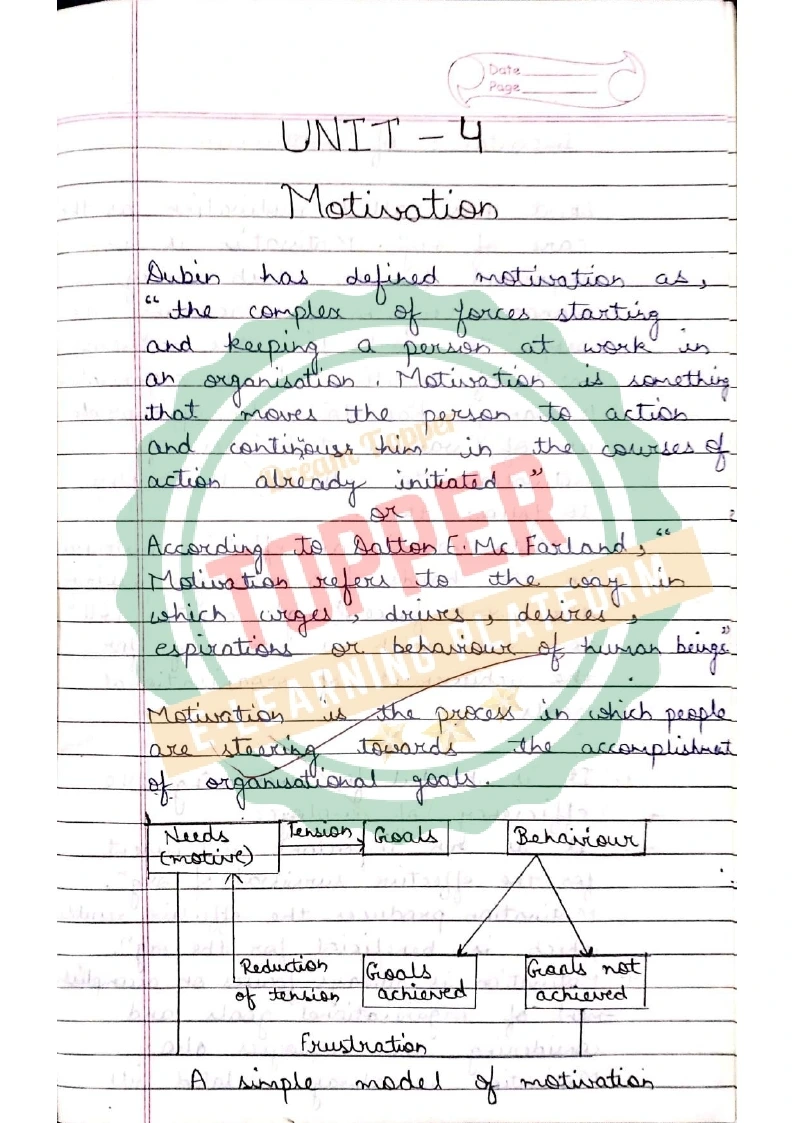 Date
Page
UNIT - 4
Motivation
Dubin has defined motivation as,
"the complex of forces starting
and keeping a person at work in
an organisation. Motivation is something
that moves the person to action
and continouss him in the courses of
action already initiated."
or
According to Dalton E. Mc Farland, "
Motivation refers to the way in
which urges, drives, desires,
espirations or behaviour of human beings"
Motivation is the process in which people
are steering towards the accomplishment
of organisational goals.
Needs
(motive)
Tension
Goals
Behaviour
Reduction
of tension
Goals
achieved
Goals not
achieved
Frustration
A simple model of motivation
Dream Topper
TOPPER
E-LEARNING PLATFORM